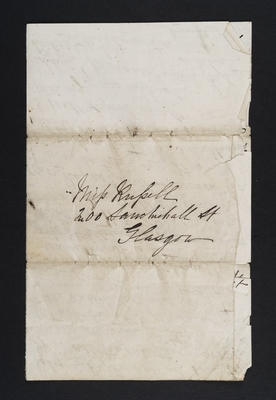 Miss Russell
200 Sauchiehall St
Glasgow